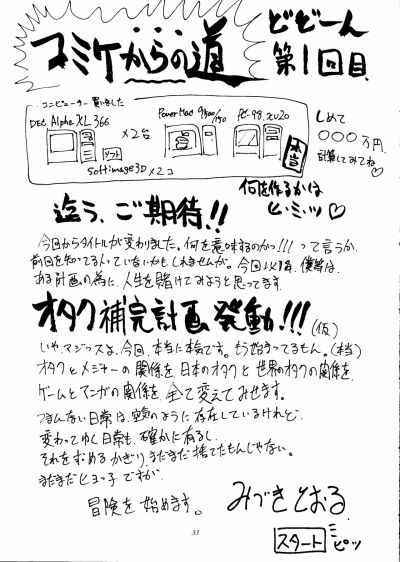 コミケからの道
どぞーん
第1回目
コンピューター買いました
DEC Alpha XL 366
×2台
ソフト
PowerMac 9500/150
PC-98 Xv20
Softimage3D×2コ
本当
しめて
○○○万円
計算してみてね♡
何を作るかは
ヒ・ミ・ツ♡
迄う、ご期待!!
今回からタイトルが変わりました。何を意味するのかっ!!!って言うか、
前回を知ってる人っていないかもしれませんが。今回より1年、僕等は、
ある計画の為に、人生を賭けてみようと思ってます。
オタク補完計画発動!!!(仮)
いや、マジっスよ、今回、本当に本気です。もう始まってるもん。(本当)
オタクとメジャーの関係を、日本のオタクと世界のオタクの関係を、
ゲームとアンガの関係を、全て変えてみせます。
つまんない日常は、空気のように存在しているけれど、
変わってゆく日常も、確かに有るし、
それを求めるかぎり、まだまだ捨てたもんじゃない。
まだまだヒヨっ子ですが、
冒険を始めます。
みづきとおる
スタート
ピッ
33